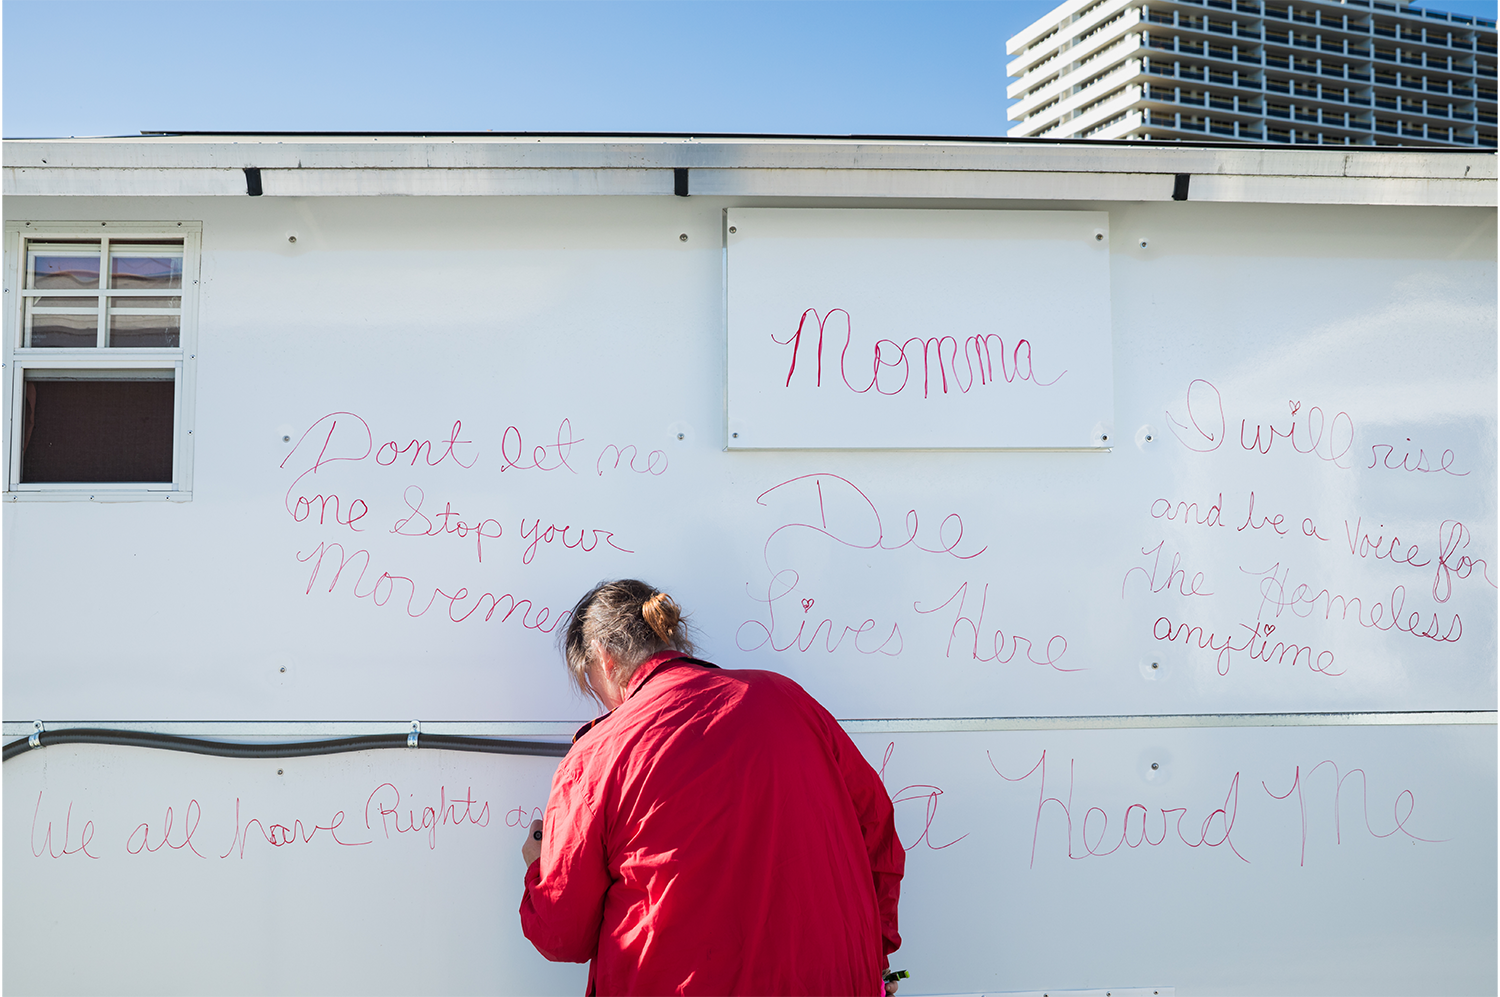 Momma
Dont let no
one Stop your
Dee
Lives Here
I will rise
and be a Voice for
The Homeless
anytime
We all have Rights
Heard Me